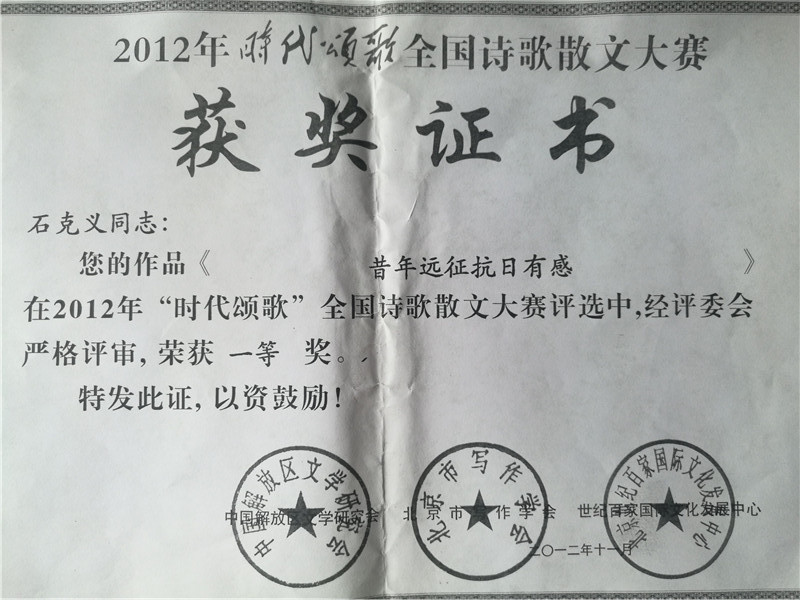 2012年时代颂歌全国诗歌散文大赛
获奖证书
石克义同志:
您的作品《 昔年远征抗日有感 》
在2012年“时代颂歌”全国诗歌散文大赛评选中,经评委会
严格评审,荣获 一等 奖。
特发此证,以资鼓励!
中国解放区文学研究会
北京市写作学会
北京世纪百家国际文化发展中心
中国解放区文学研究会 北京市写作学会 世纪百家国际文化发展中心
二〇一二年十一月